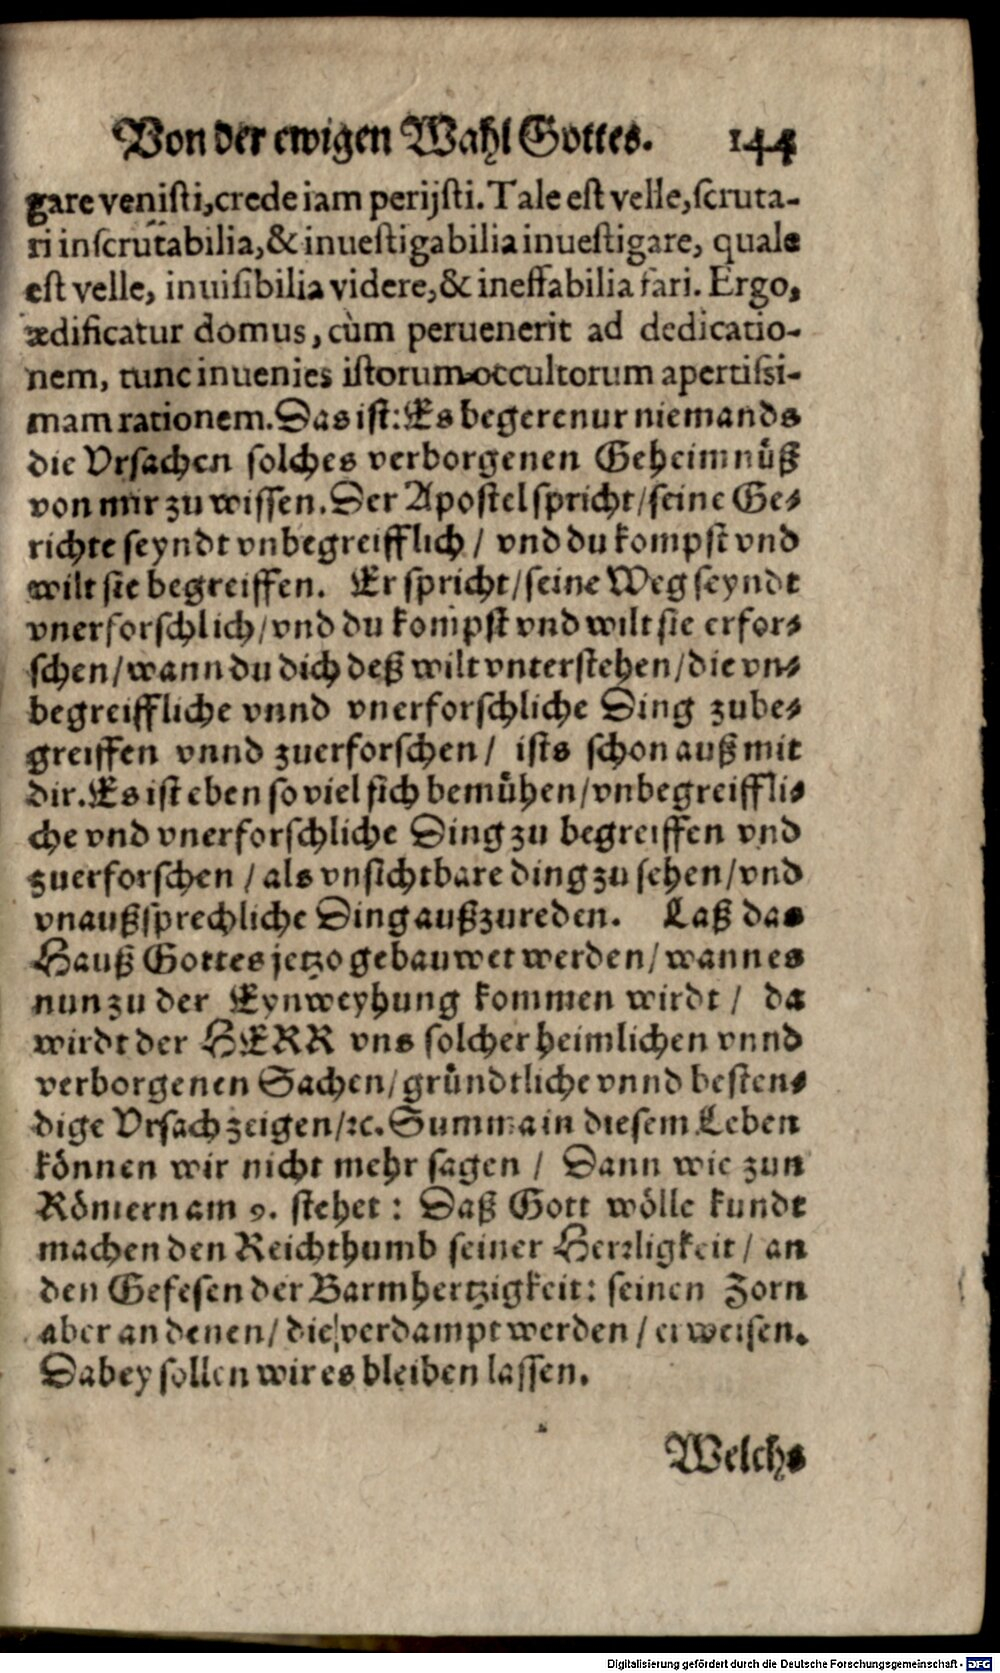 Von der ewigen Wahl Gottes. 144
gare venisti, crede iam perijsti. Tale est velle, scruta-
ri inscrutabilia, & inuestigabilia inuestigare, quale
est velle, inuisibilia videre, & ineffabilia fari. Ergo,
ædificatur domus, cùm peruenerit ad dedicatio-
nem, tunc inuenies istorum occultorum apertissi-
mam rationem. Das ist: Es begere nur niemands
die Vrsachen solches verborgenen Geheimnůß
von mir zu wissen. Der Apostel spricht / seine Ge-
richte seyndt vnbegreifflich / vnd du kompst vnd
wilt sie begreiffen. Er spricht / seine Weg seyndt
vnerforschlich / vnd du kompst vnd wilt sie erfor-
schen / wann du dich deß wilt vnterstehen / die vn-
begreiffliche vnnd vnerforschliche Ding zube-
greiffen vnnd zuerforschen / ists schon auß mit
dir. Es ist eben so viel sich bemůhen / vnbegreiffli-
che vnd vnerforschliche Ding zu begreiffen vnd
zuerforschen / als vnsichtbare ding zu sehen / vnd
vnaußsprechliche Ding außzureden. Laß das
Hauß Gottes jetzo gebauwet werden / wann es
nun zu der Eynweyhung kommen wirdt / da
wirdt der HERR vns solcher heimlichen vnnd
verborgenen Sachen / gründtliche vnnd besten-
dige Vrsach zeigen / ꝛc. Summa in diesem Leben
können wir nicht mehr sagen / Dann wie zun
Römern am 9. stehet: Daß Gott wölle kundt
machen den Reichthumb seiner Herrligkeit / an
den Gefesen der Barmhertzigkeit: seinen Zorn
aber an denen / die verdampt werden / erweisen.
Dabey sollen wir es bleiben lassen.
Welchs
Digitalisierung gefördert durch die Deutsche Forschungsgemeinschaft - DFG